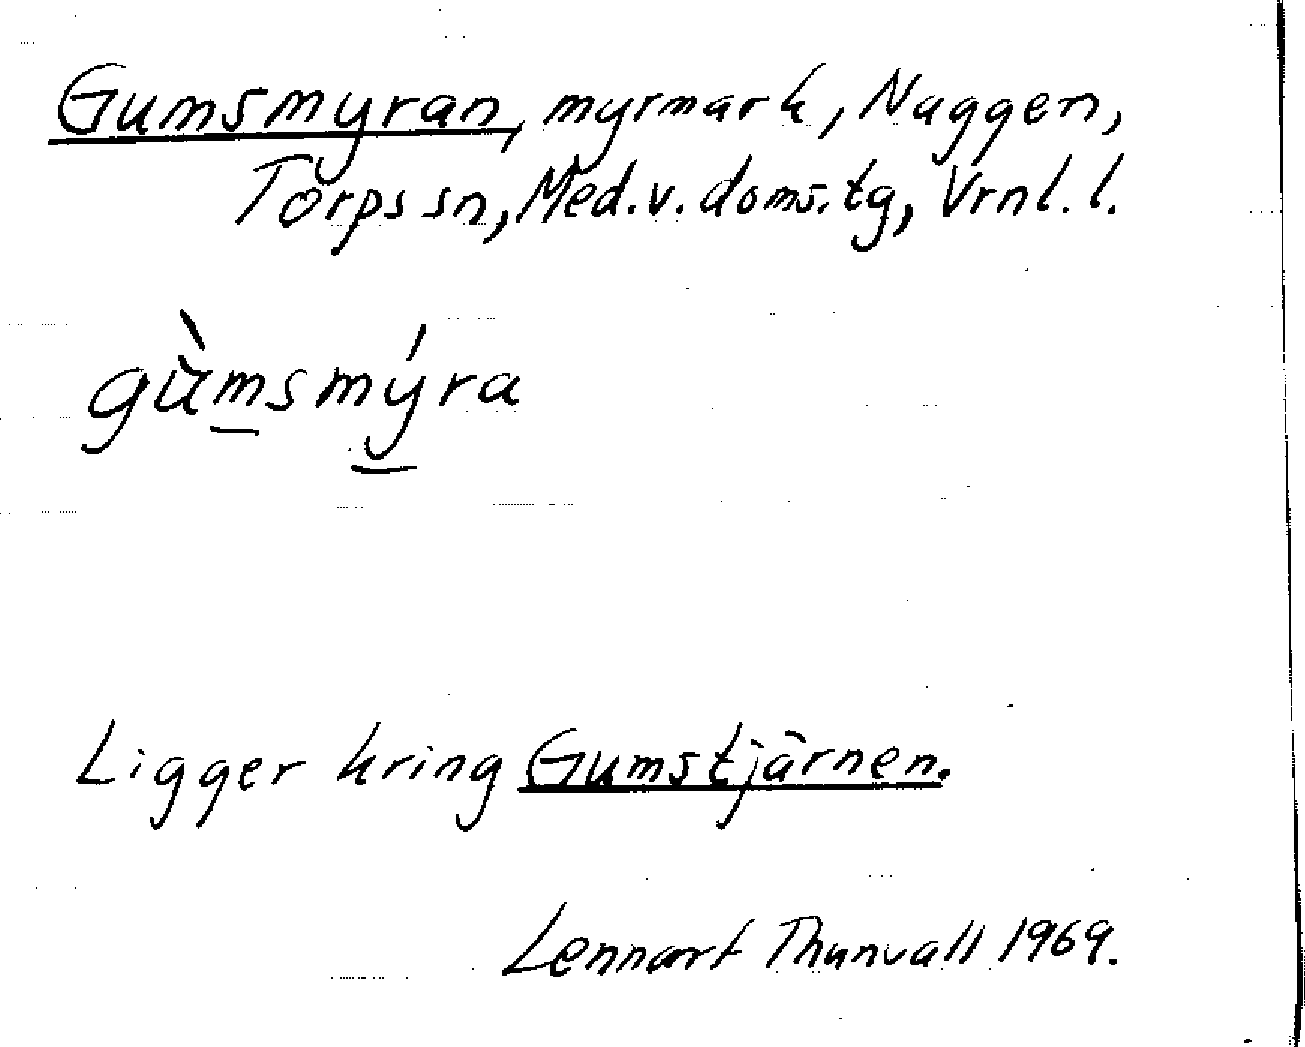 Gumsmyran, myrmark, Naggen,
Torps sn, Med.v.doms.tg, Vrnl.l.
gùmsmýra
Ligger kring Gumstjärnen.
Lennart Thunvall 1969.